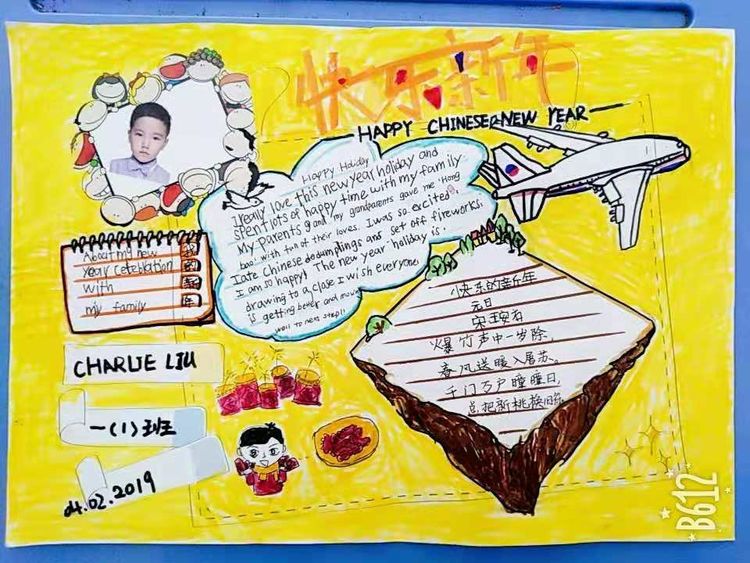 快乐新年
HAPPY CHINESE NEW YEAR
Happy Holiday
I really love this new year holiday and
spent lots of happy time with my family.
My parents and my grandparents gave me 'Hong
bao' with full of their loves. I was so excited.
I ate Chinese dumplings and set off fireworks.
I am so happy! The new year holiday is
drawing to a close I wish everyone
is getting better and move
well to next step!!
About my new
year celebration
with
my family
我
的
新
年
CHARLIE LIU
一(1)班
04.02.2019
快乐的新年
元日
宋 王安石
爆竹声中一岁除,
春风送暖入屠苏。
千门万户瞳瞳日,
总把新桃换旧符
B612